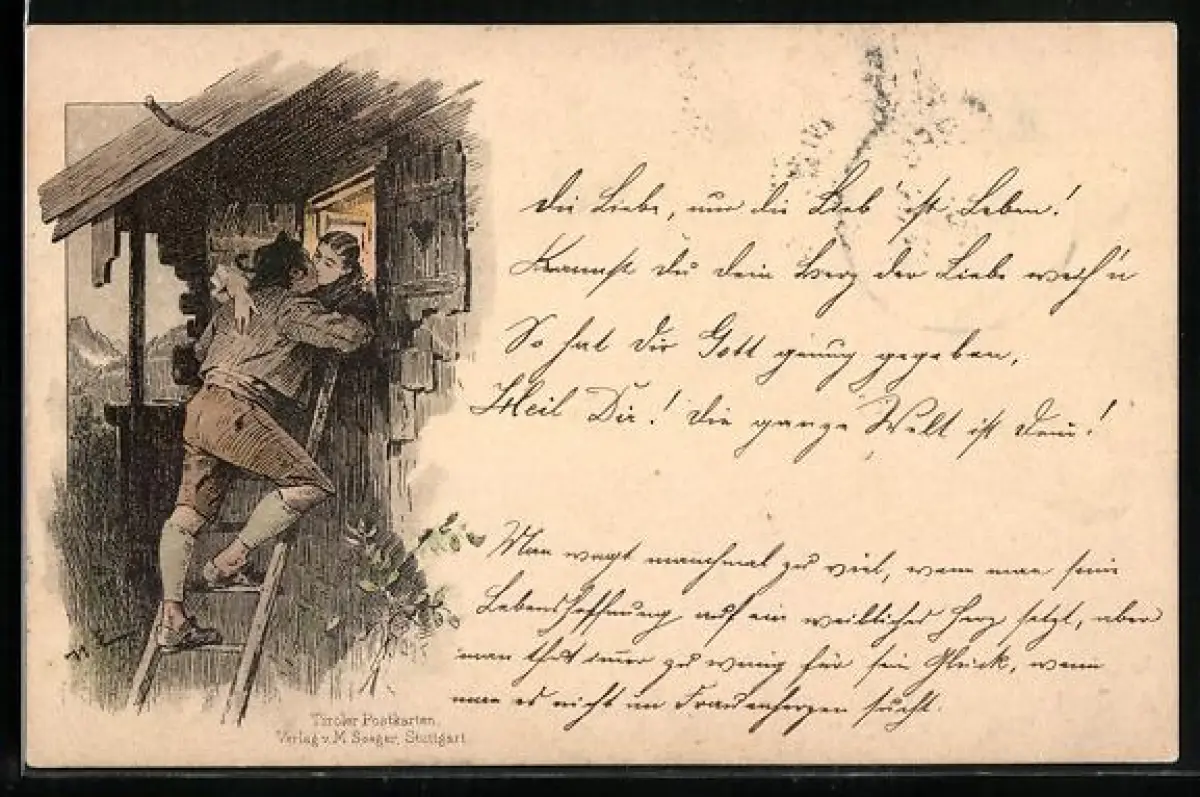 Die Liebe, nur die Lieb' ist Leben!
Kannst du dein Herz der Liebe weih'n
So hat dir Gott genug gegeben,
Heil Dir! die ganze Welt ist dein!
Man wagt manchmal zu viel, wenn man seine
Lebenshoffnung auf ein weibliches Herz setzt, aber
man thut immer zu wenig für sein Glück, wenn
man es nicht im Frauenherzen sucht.
Tiroler Postkarten.
Verlag v. M. Seeger, Stuttgart